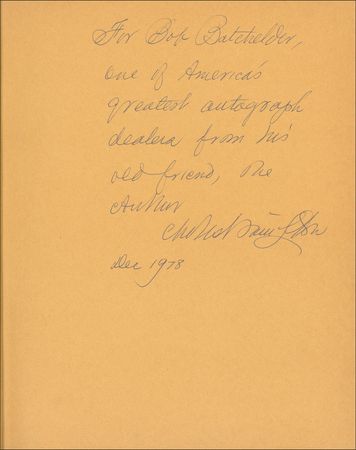 For Bob Batchelder,
one of America's
greatest autograph
dealers from his
old friend, the
Author
Charles Hamilton
Dec 1978